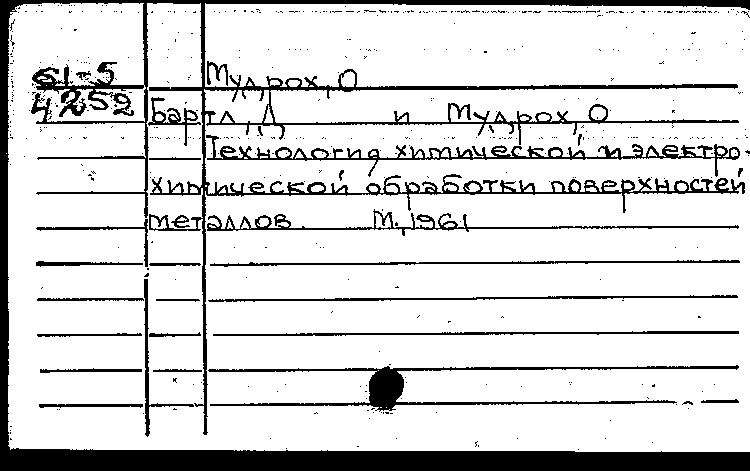 61-5 Мудрох, О
4252 Бартл, Д и Мудрох, О
Технология химической и электро-
химической обработки поверхностей
металлов. М., 1961